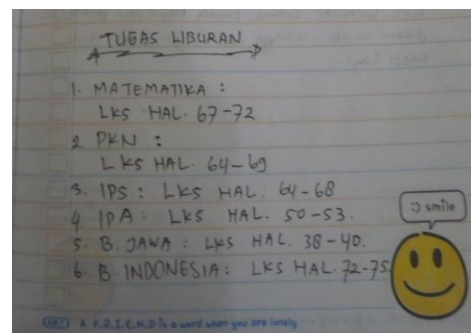 TUGAS LIBURAN
1. MATEMATIKA :
LKS HAL. 67-72
2. PKN :
LKS HAL. 64-69
3. IPS : LKS HAL. 64-68
4. IPA : LKS HAL. 50-53.
5. B. JAWA : LKS HAL. 38-40.
6. B. INDONESIA : LKS HAL. 72-75
:) smile
A F.R.I.E.N.D is a word when you are lonely